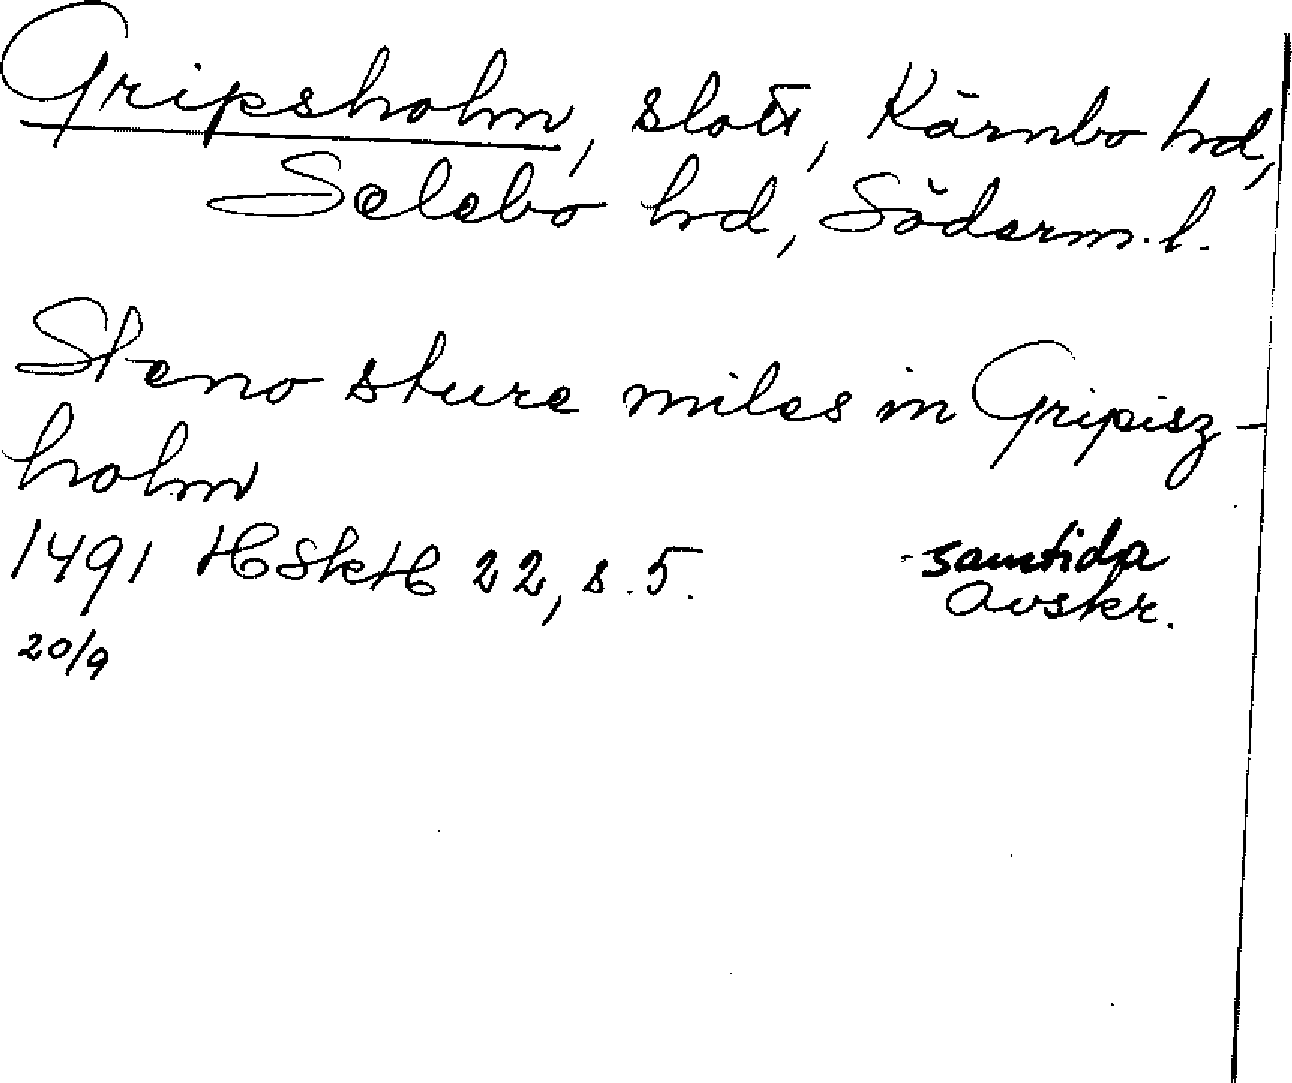 Gripsholm, slott, Kärnbo hd,
Selebo hd, Söderm. l.
Steno sture miles in Gripisz-
holm
1491 HSkH 22, s. 5. samtida
avskr.
20/9